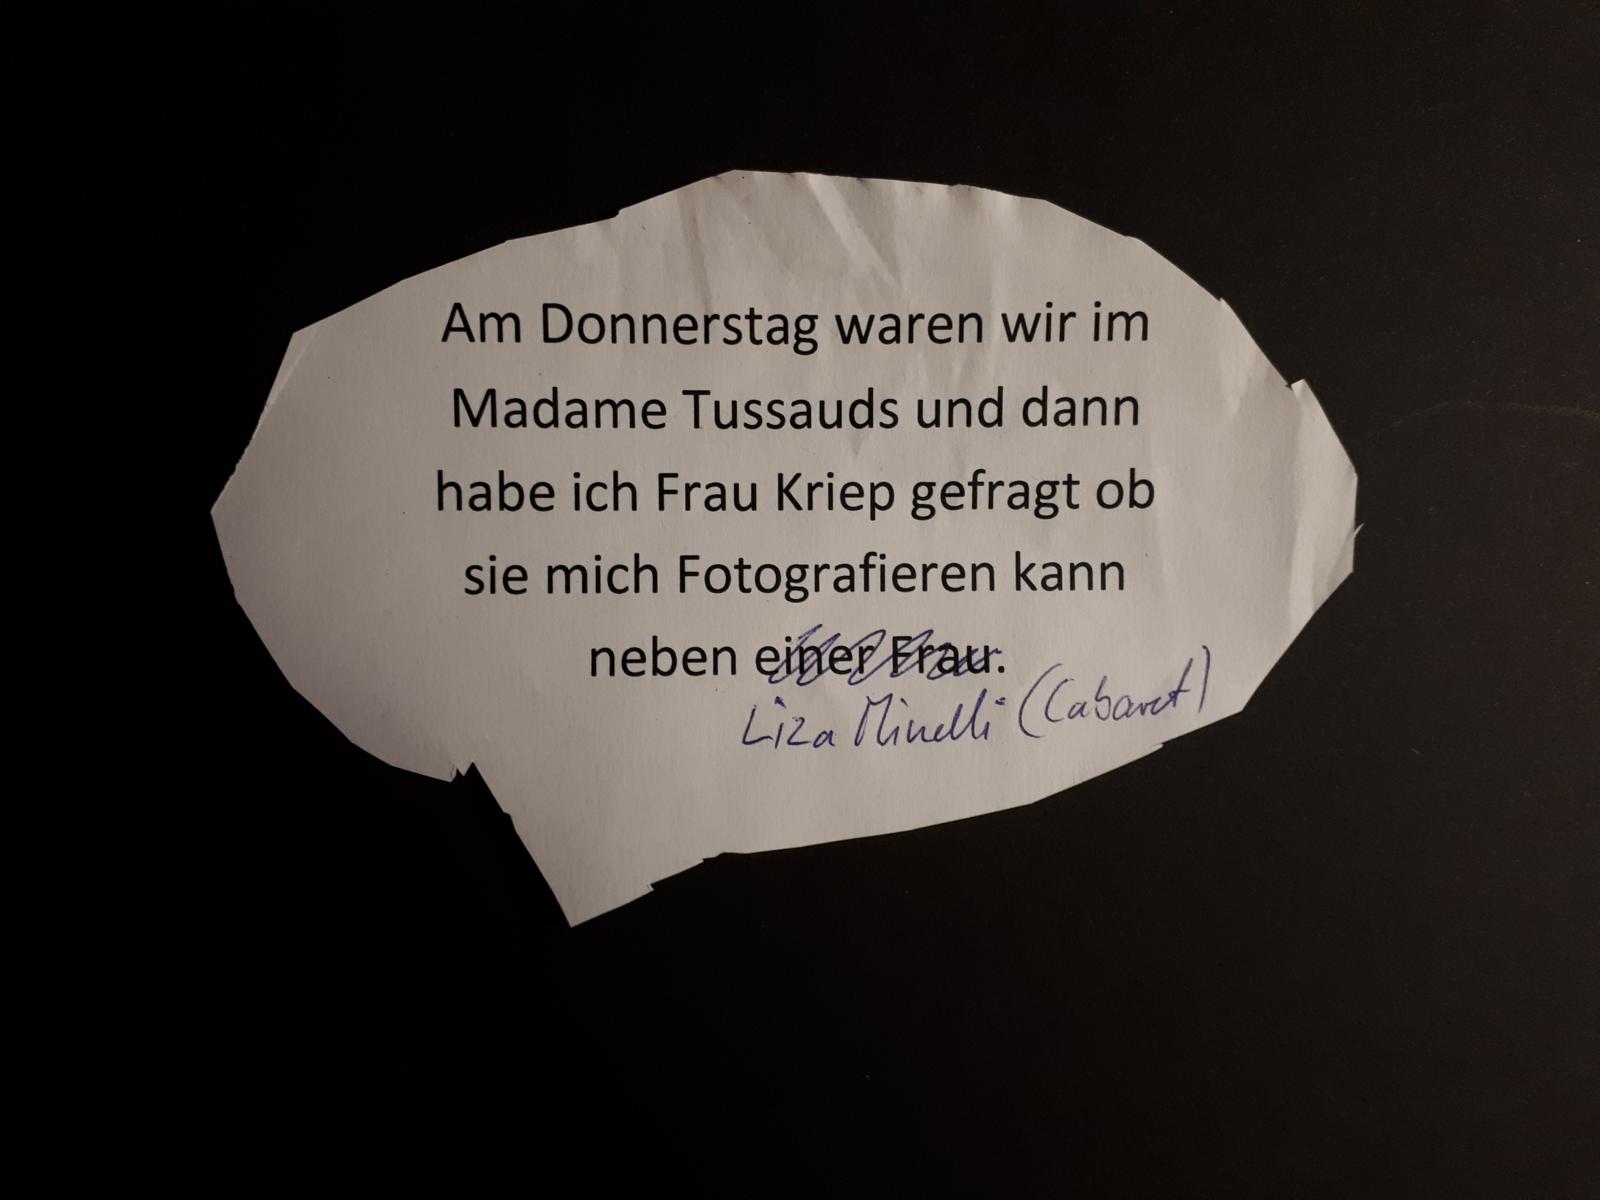 Am Donnerstag waren wir im
Madame Tussauds und dann
habe ich Frau Kriep gefragt ob
sie mich Fotografieren kann
neben einer Frau.
Liza Minelli (Cabaret)